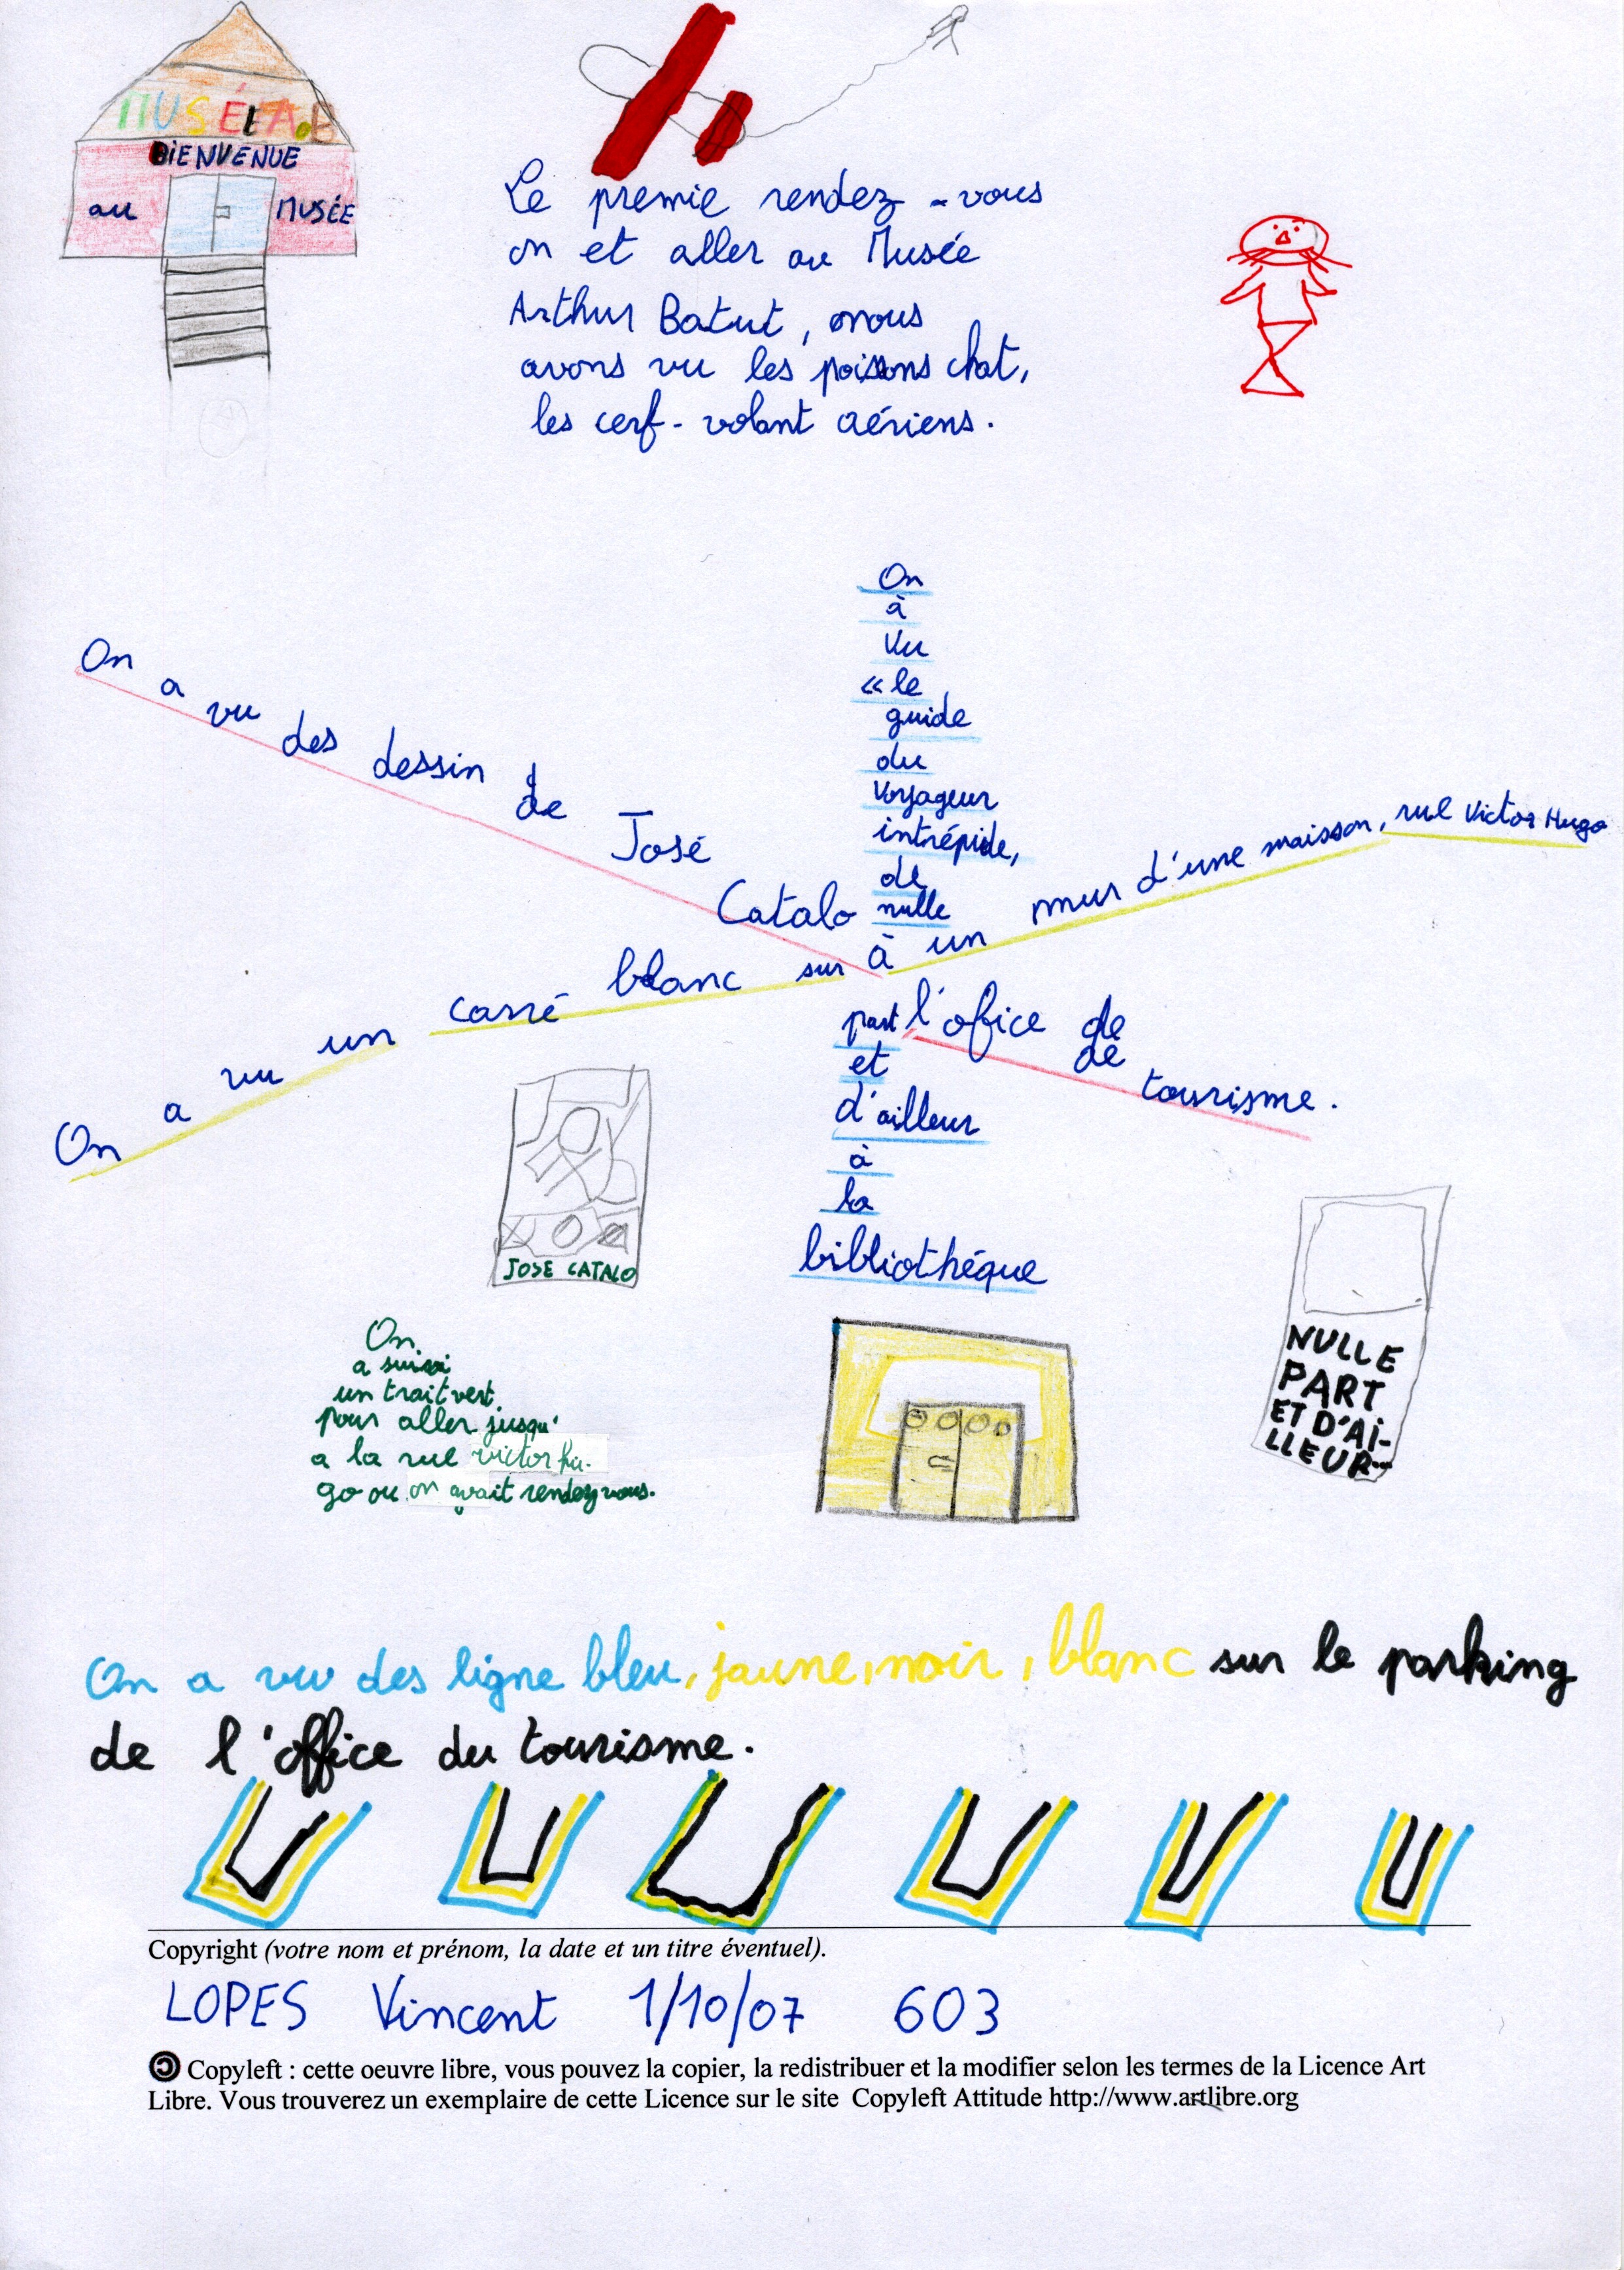 BIENVENUE
au MUSÉE
Le premie rendez-vous
on et aller au Musée
Arthur Batut, nous
avons vu les poissons chat,
les cerf-volant aériens.
On a vu des dessin de José Catalo à l'ofice de de tourisme.
On
à
vu
« le
guide
du
voyageur
intrépide,
de
nulle
à
part
et
d'ailleur
à
la
bibliothéque
On a vu un carré blanc sur à un mur d'une maisson, rue Victor Hugo
JOSE CATALO
NULLE
PART
ET D'AI-
LLEUR...
On
a suivi
un trait vert
pour aller jusqu'
a la rue victor hu-
go ou on avait rendez vous.
On a vu des ligne bleu, jaune, noir, blanc sur le parking
de l'office du tourisme.
Copyright (votre nom et prénom, la date et un titre éventuel).
LOPES Vincent 1/10/07 603
Copyleft : cette oeuvre libre, vous pouvez la copier, la redistribuer et la modifier selon les termes de la Licence Art
Libre. Vous trouverez un exemplaire de cette Licence sur le site Copyleft Attitude http://www.artlibre.org